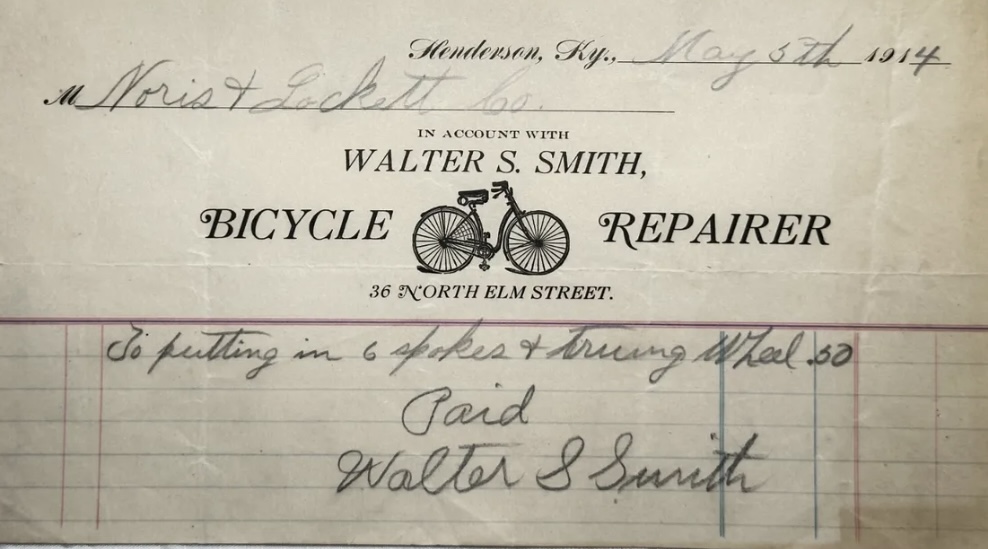 Henderson, Ky., May 5th 1914
M Noris & Lockett Co.
IN ACCOUNT WITH
WALTER S. SMITH,
BICYCLE REPAIRER
36 NORTH ELM STREET.
To putting in 6 spokes & truing Wheel .50
Paid
Walter S Smith